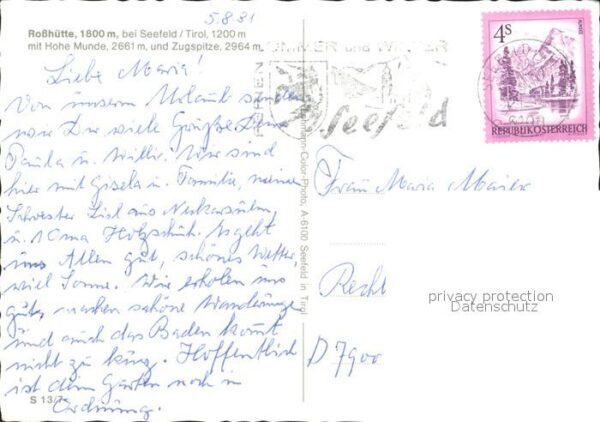 5.8.81
Roßhütte, 1800 m, bei Seefeld / Tirol, 1200 m
mit Hohe Munde, 2661 m, und Zugspitze, 2964 m
Liebe Maria!
Von unserm Urlaub senden
wir Dir viele Grüße Deine
Paula u. Willi. Wir sind
hier mit Gisela u. Familie, meiner
Schwester Lisl aus Neckarsulm,
u. Oma Holzschuh. Es geht
uns Allen gut, schönes Wetter,
viel Sonne. Wir erholen uns
gut, machen schöne Wanderunge
und auch das Baden kommt
nicht zu kurz. Hoffentlich
ist dein Garten noch in
Ordnung.
S 13/7
-Color-Photo, A-6100 Seefeld in Tirol
SOMMER und WINTER
Seefeld
4S
REPUBLIK ÖSTERREICH
Frau Maria Maier
Recht
D 7900
privacy protection
Datenschutz